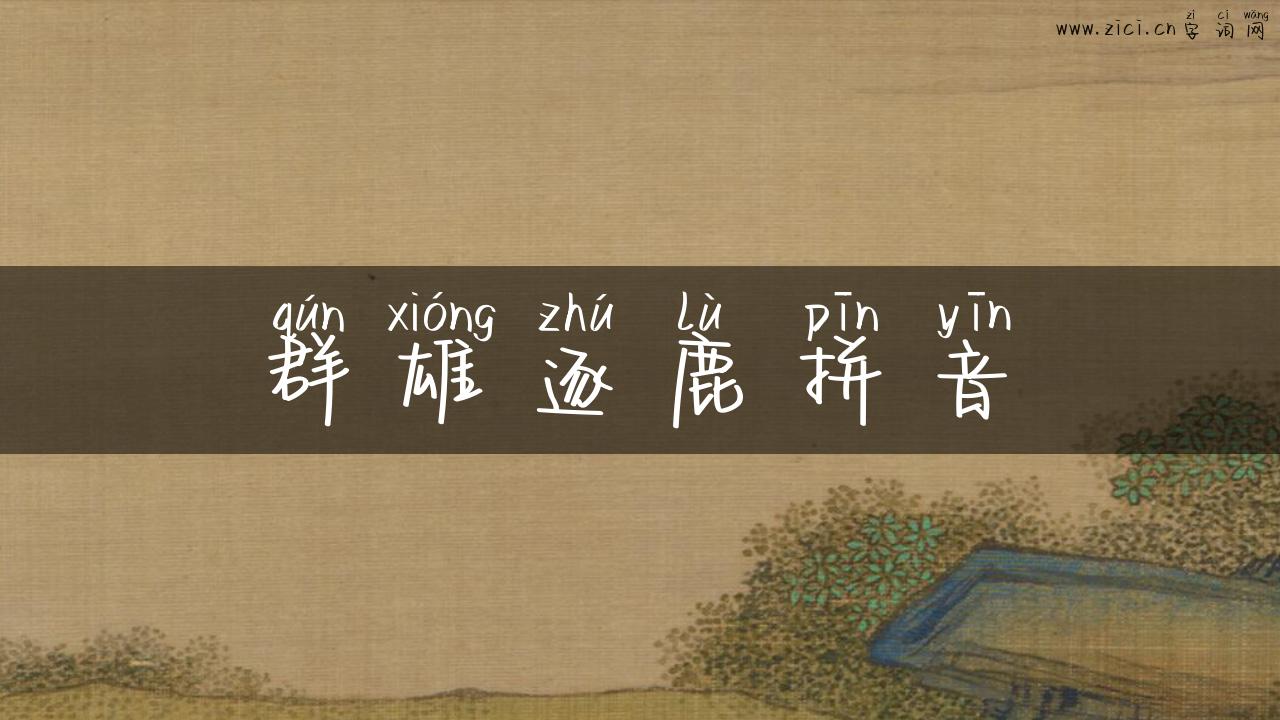 zì cí wǎng
www.zici.cn 字词网
qún xióng zhú lù pīn yīn
群雄逐鹿拼音